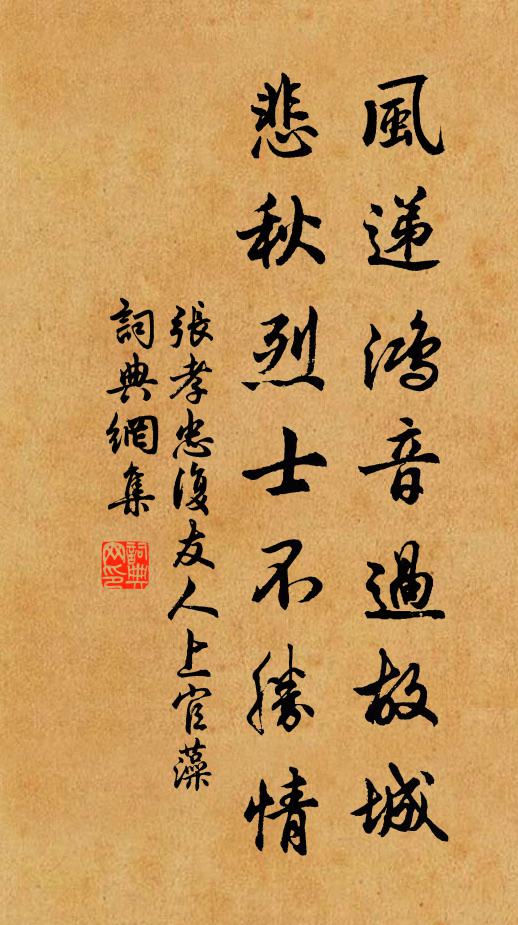 風递鴻音過故城
悲秋烈士不勝情
張孝忠復友人上官藻
詞典網集
詞典
网印